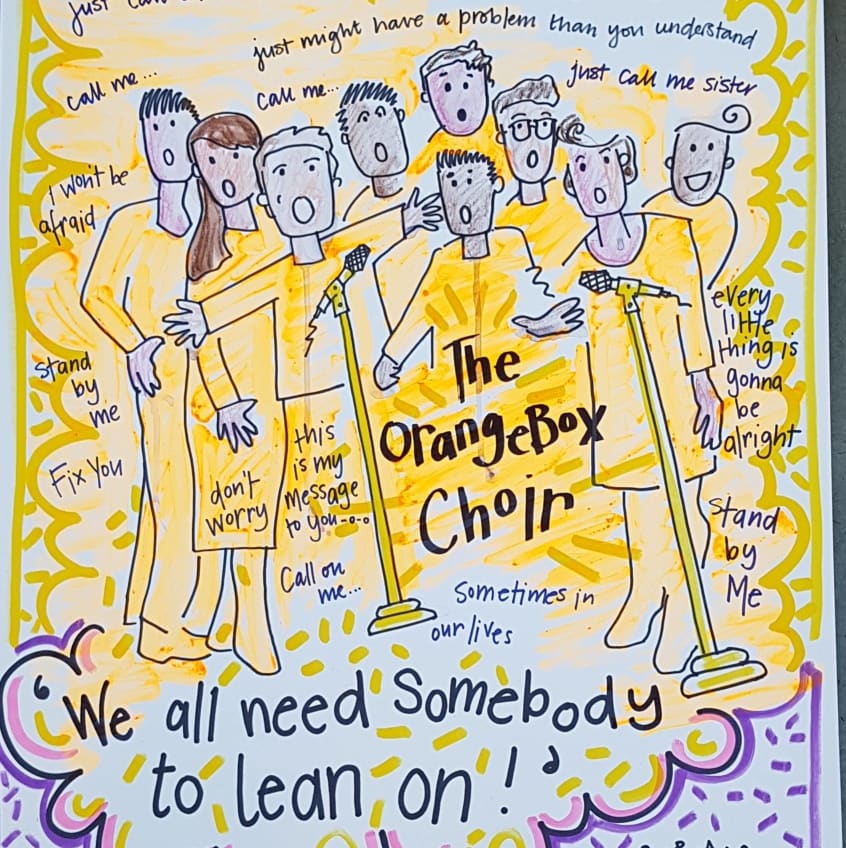 just
just might have a problem than you understand
call me...
call me...
just call me sister
I won't be
afraid
Stand
by
me
Fix You
don't
worry
this
is my
message
to you-o-o
Call on
me...
The
OrangeBox
Choir
every
little
thing is
gonna
be
alright
Stand
by
Me
Sometimes in
our lives
'We all need Somebody
to lean on!'